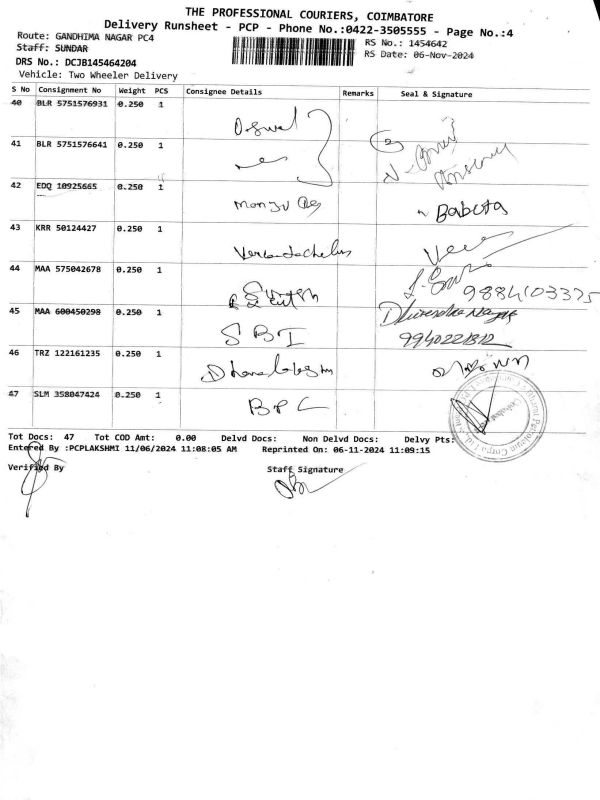 THE PROFESSIONAL COURIERS, COIMBATORE
Delivery Runsheet - PCP - Phone No.:0422-3505555 - Page No.:4
Route: GANDHIMA NAGAR PC4 RS No.: 1454642
Staff: SUNDAR RS Date: 06-Nov-2024
DRS No.: DCJB145464204
Vehicle: Two Wheeler Delivery
S No Consignment No Weight PCS Consignee Details Remarks Seal & Signature
40 BLR 5751576931 0.250 1
41 BLR 5751576641 0.250 1
42 EDQ 10925665 0.250 1 Babeta
43 KRR 50124427 0.250 1
44 MAA 575042678 0.250 1 9884103375
45 MAA 600450298 0.250 1 SBI
9940221312
46 TRZ 122161235 0.250 1
47 SLM 358047424 0.250 1 BPC
Tot Docs: 47 Tot COD Amt: 0.00 Delvd Docs: Non Delvd Docs: Delvy Pts:
Entered By :PCPLAKSHMI 11/06/2024 11:08:05 AM Reprinted On: 06-11-2024 11:09:15
Verified By Staff Signature